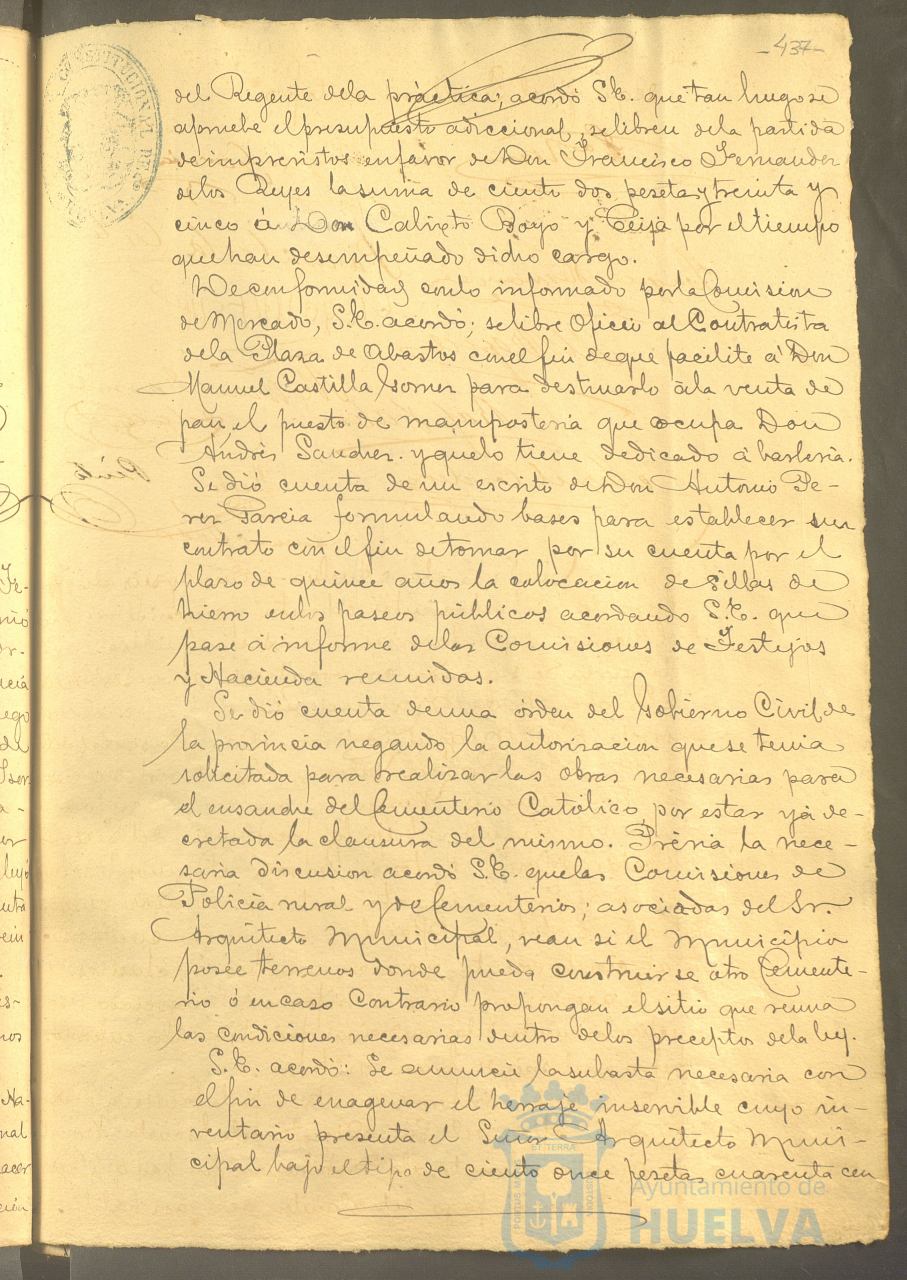 -437-
del Regente dela práctica; acordó S.E. que tan luego se
apruebe el presupuesto adiccional, se libren dela partida
de imprevistos en favor de Don Francisco Fernandez
delos Reyes la suma de ciento dos pesetas y treinta y
cinco á Don Calixto Boyo y Ceija por el tiempo
que han desempeñado dicho cargo.
De conformidad con lo informado por la Comision
de Mercado, S.E. acordó; se libre oficio al Contratista
dela Plaza de Abastos con el fin de que facilite á Don
Manuel Castilla Gomez para destinarlo á la venta de
pan el puesto de mamposteria que ocupa Don
Andrés Sanchez y que lo tiene dedicado á barberia.
Se dió cuenta de un escrito de Don Antonio Pe-
rez Garcia formulando bases para establecer un
contrato con el fin de tomar por su cuenta por el
plazo de quince años la colocacion de sillas de
hierro en los paseos públicos acordando S.E. que
pase á informe delas Comisiones de Festejos
y Hacienda reunidas.
Se dió cuenta de una órden del Gobierno Civil de
la provincia negando la autorizacion que se tenia
solicitada para realizar las obras necesarias para
el ensanche del Cementerio Católico, por estar yá de-
cretada la clausura del mismo. Prévia la nece-
saria discusion acordó S.E. que las Comisiones de
Policía rural y de Cementerios; asociadas del Sr.
Arquitecto Municipal, vean si el Municipio
posée terrenos donde pueda construirse otro Cemente-
rio ó en caso Contrario propongan el sitio que reuna
las condiciones necesarias dentro delos preceptos dela ley.
S.E. acordó: Se anuncie la subasta necesaria con
el fin de enagenar el herraje inservible cuyo in-
ventario presenta el Señor Arquitecto Muni-
cipal bajo el tipo de ciento once pesetas cuarenta cen
Ayuntamiento de
HUELVA